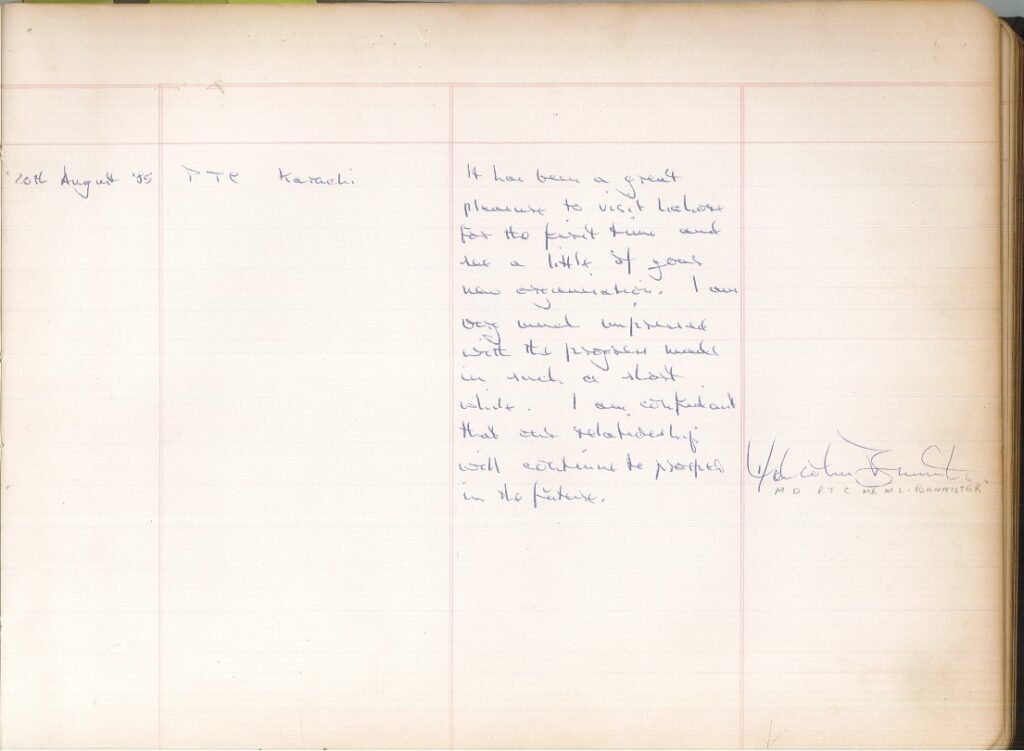 20th August '85 PTC Karachi
It has been a great
pleasure to visit Lahore
for the first time and
see a little of your
new organisation. I am
very much impressed
with the progress made
in such a short
while. I am confident
that our relationship
will continue to prosper
in the future.
MD PTC MR M L. BANNISTER